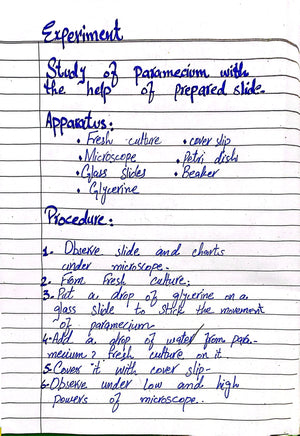 Experiment
Study of paramecium with
the help of prepared slide.
Apparatus:
• Fresh culture • cover slip
• Microscope • Petri dish
• Glass Slides • Beaker
• Glycerine
Procedure:
1. Observe slide and charts
under microscope.
2. From fresh culture:
3. Put a drop of glycerine on a
glass slide to stick the movement
of paramecium
4. Add a drop of water from para-
mecium? fresh culture on it.
5. Cover it with cover slip.
6. Observe under low and high
powers of microscope.